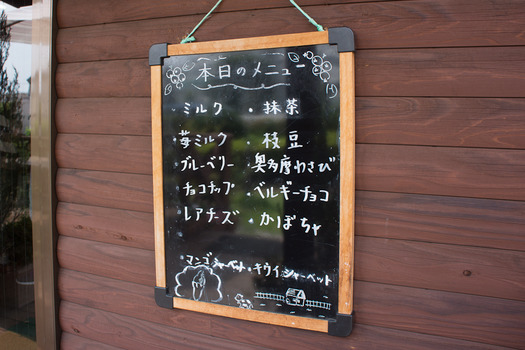 本日のメニュー
・ミルク ・抹茶
・苺ミルク ・枝豆
・ブルーベリー ・奥多摩わさび
・チョコチップ ・ベルギーチョコ
・レアチーズ ・かぼちゃ
・マンゴシャーベット ・キウイシャーベット